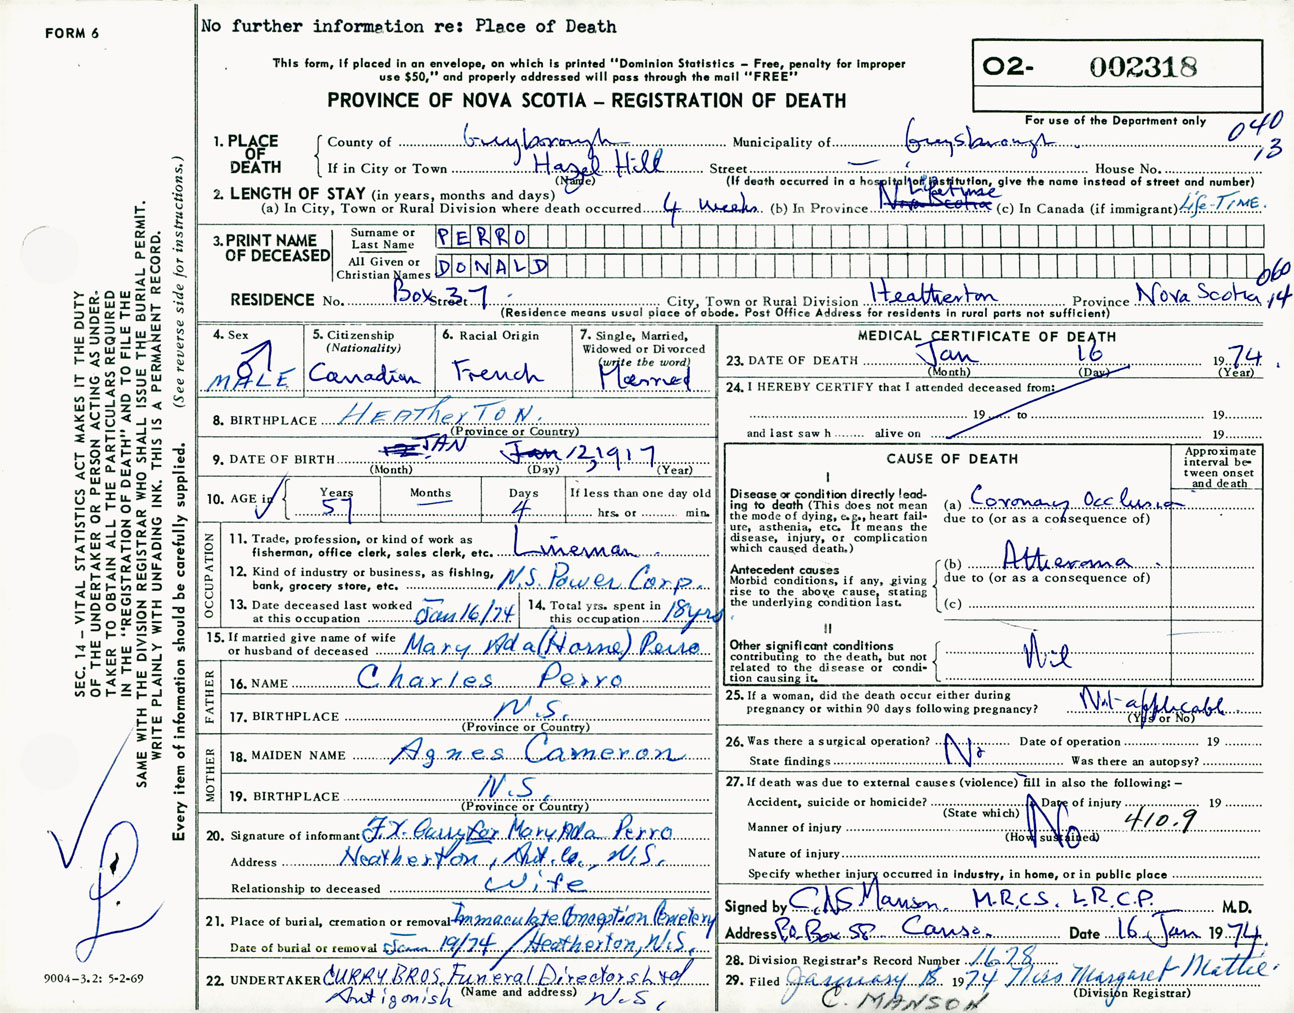 No further information re: Place of Death
FORM 6
This form, if placed in an envelope, on which is printed "Dominion Statistics – Free, penalty for improper
use $50," and properly addressed will pass through the mail "FREE"
PROVINCE OF NOVA SCOTIA – REGISTRATION OF DEATH
O2- 002318
For use of the Department only
040
13
1. PLACE OF DEATH
County of Guysborough Municipality of Guysborough
If in City or Town Hazel Hill Street — House No.
(Name) (If death occurred in a hospital or institution, give the name instead of street and number)
2. LENGTH OF STAY (in years, months and days)
(a) In City, Town or Rural Division where death occurred 4 weeks (b) In Province Nova Scotia Lifetime (c) In Canada (if immigrant) Life-TIME.
3. PRINT NAME OF DECEASED
Surname or Last Name PERRO
All Given or Christian Names DONALD
060
14
RESIDENCE No. Box 37 Street City, Town or Rural Division Heatherton Province Nova Scotia
(Residence means usual place of abode. Post Office Address for residents in rural parts not sufficient)
4. Sex MALE
5. Citizenship (Nationality) Canadian
6. Racial Origin French
7. Single, Married, Widowed or Divorced (write the word) Married
8. BIRTHPLACE HEATherTON.
(Province or Country)
9. DATE OF BIRTH JAN Jan 12, 1917
(Month) (Day) (Year)
10. AGE in Years 57 Months — Days 4 If less than one day old hrs. or min.
OCCUPATION
11. Trade, profession, or kind of work as fisherman, office clerk, sales clerk, etc. Lineman.
12. Kind of industry or business, as fishing, bank, grocery store, etc. N.S. Power Corp.
13. Date deceased last worked at this occupation Jan 16/74
14. Total yrs. spent in this occupation 18yrs
15. If married give name of wife or husband of deceased Mary Ada (Horne) Perro
FATHER
16. NAME Charles Perro
17. BIRTHPLACE N.S.
(Province or Country)
MOTHER
18. MAIDEN NAME Agnes Cameron
19. BIRTHPLACE N.S.
(Province or Country)
20. Signature of informant F.X. Curry for Mary Ada Perro
Address Heatherton, Ant. Co., N.S.
Relationship to deceased wife
21. Place of burial, cremation or removal Immaculate Conception Cemetery
Date of burial or removal Jan 19/74 / Heatherton, N.S.
22. UNDERTAKER CURRY BROS. Funeral Directors Ltd
(Name and address)
Antigonish N.S.
MEDICAL CERTIFICATE OF DEATH
23. DATE OF DEATH Jan 16 1974.
(Month) (Day) (Year)
24. I HEREBY CERTIFY that I attended deceased from:
19 to 19
and last saw h alive on 19
CAUSE OF DEATH
Approximate interval between onset and death
I
Disease or condition directly leading to death (This does not mean the mode of dying, e.g., heart failure, asthenia, etc. It means the disease, injury, or complication which caused death.)
(a) Coronary Occlusion
due to (or as a consequence of)
Antecedent causes
Morbid conditions, if any, giving rise to the above cause, stating the underlying condition last.
(b) Atheroma.
due to (or as a consequence of)
(c)
II
Other significant conditions
contributing to the death, but not related to the disease or condition causing it.
Nil
25. If a woman, did the death occur either during pregnancy or within 90 days following pregnancy? Not-applicable.
(Yes or No)
26. Was there a surgical operation? No Date of operation 19
State findings Was there an autopsy?
27. If death was due to external causes (violence) fill in also the following: –
Accident, suicide or homicide? Date of injury 19
(State which)
Manner of injury No 410.9
(How sustained)
Nature of injury
Specify whether injury occurred in industry, in home, or in public place
Signed by C.N.S Manson. M.R.C.S. L.R.C.P. M.D.
Address P.O. Box 58 Canso. Date 16 Jan 1974.
28. Division Registrar's Record Number 1678
29. Filed January 18 1974 Mrs Margaret Mattie.
(Division Registrar)
C. MANSON
SEC. 14 – VITAL STATISTICS ACT MAKES IT THE DUTY
OF THE UNDERTAKER OR PERSON ACTING AS UNDER-
TAKER TO OBTAIN ALL THE PARTICULARS REQUIRED
IN THE "REGISTRATION OF DEATH" AND TO FILE THE
SAME WITH THE DIVISION REGISTRAR WHO SHALL ISSUE THE BURIAL PERMIT.
WRITE PLAINLY WITH UNFADING INK. THIS IS A PERMANENT RECORD.
Every item of information should be carefully supplied. (See reverse side for instructions.)
9004–3.2: 5-2-69